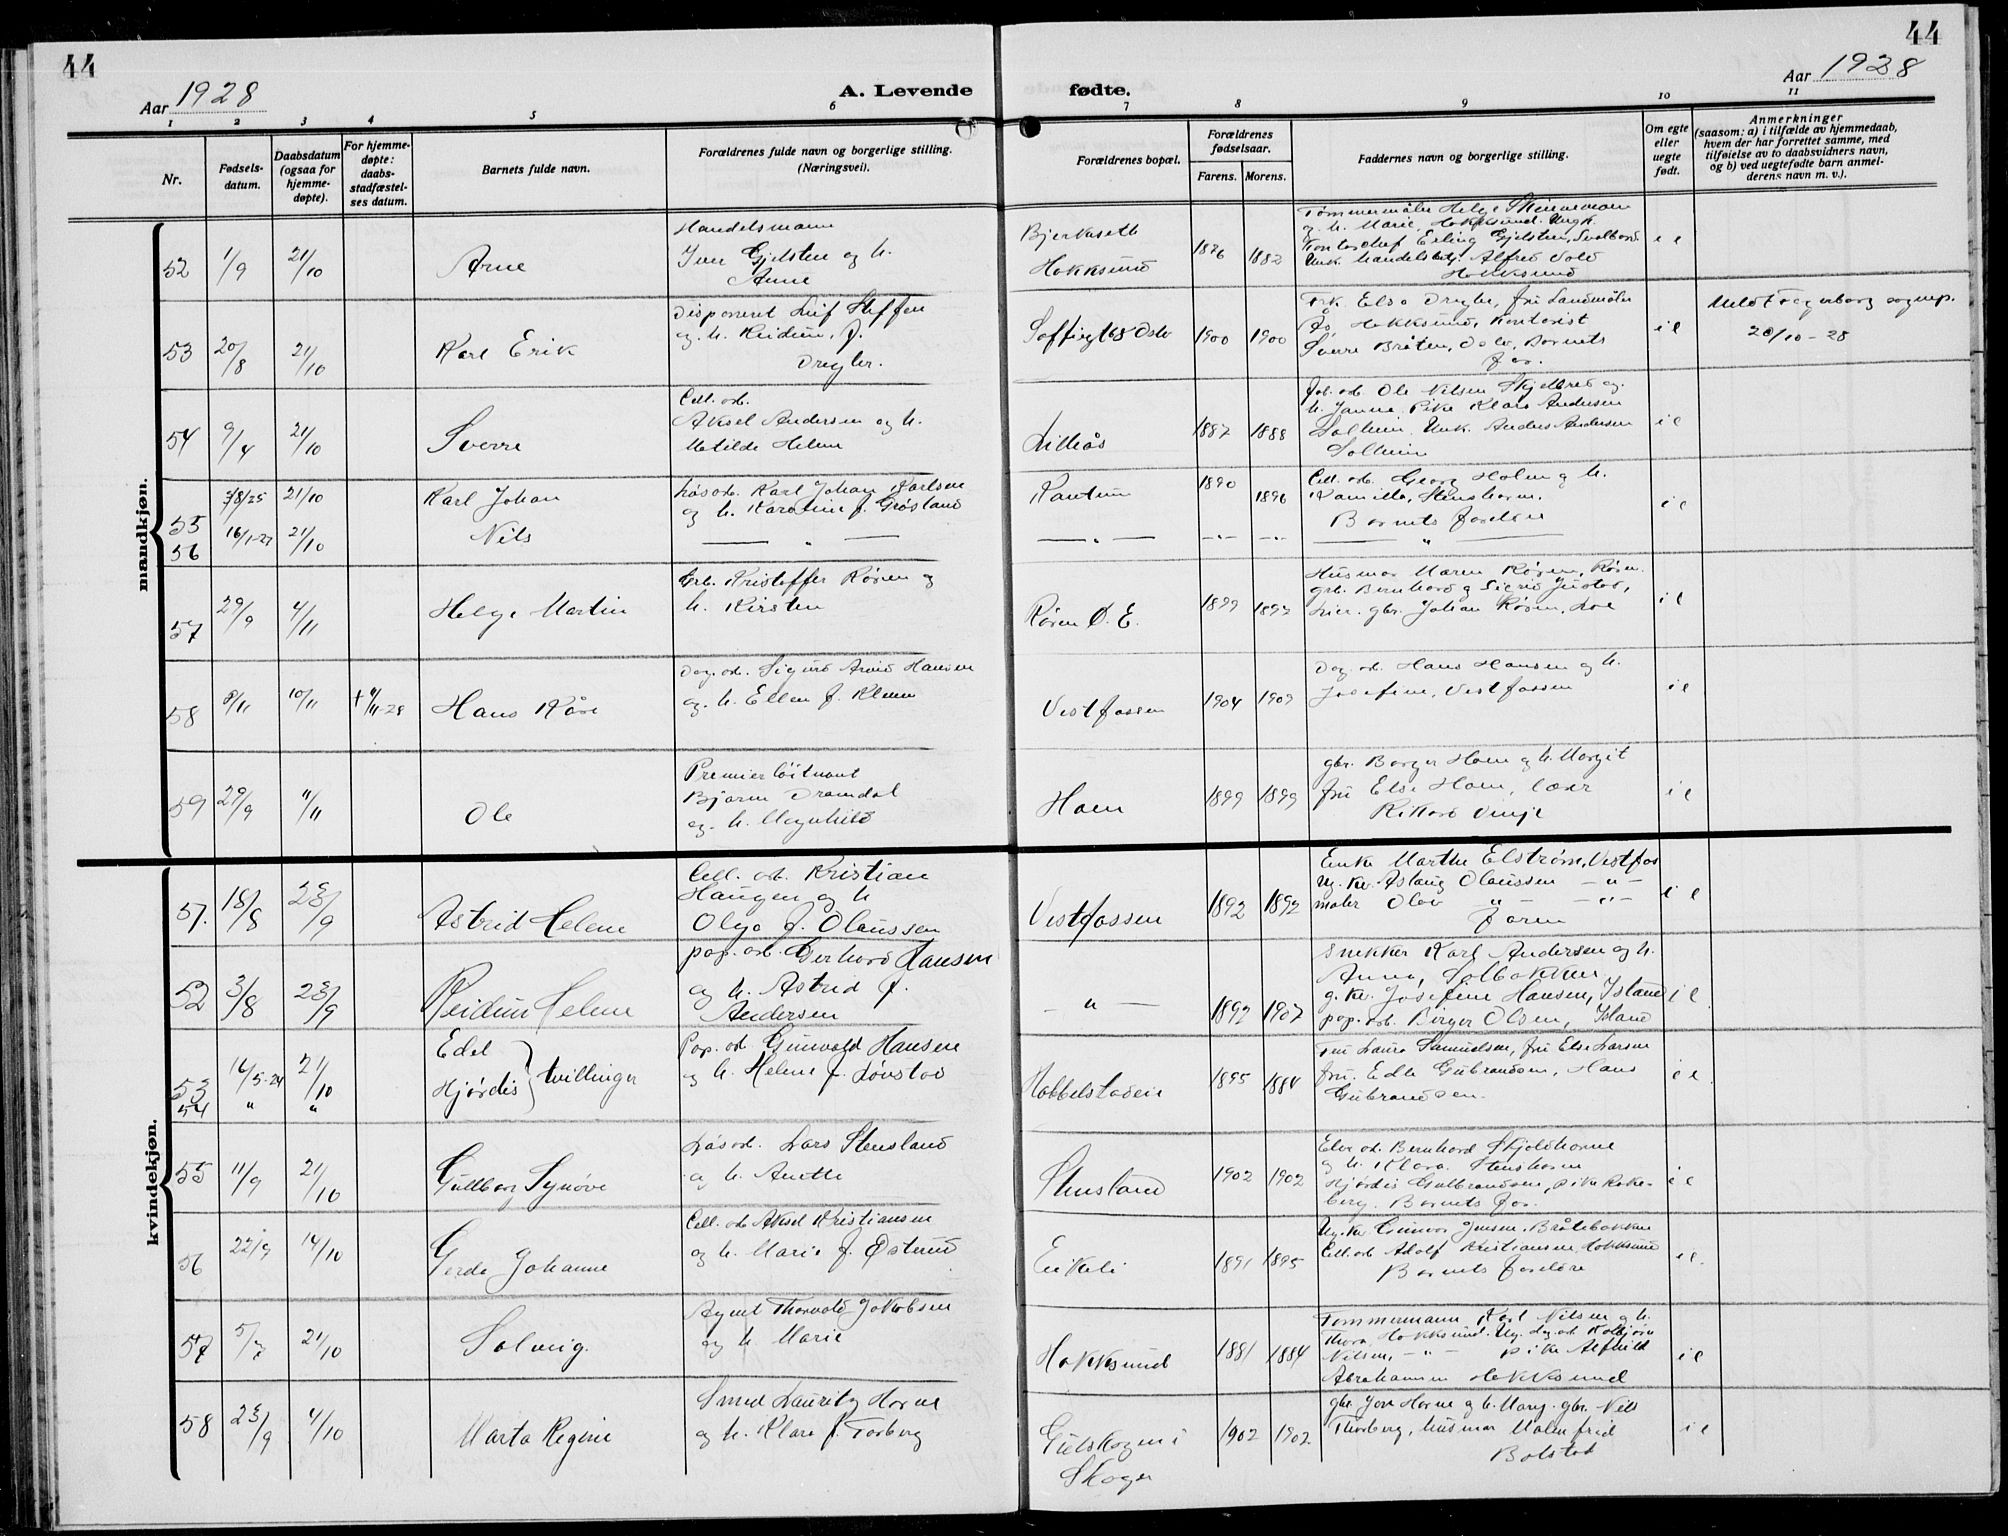 44
44
Aar 1928
A. Levende
fødte.
Aar 1928
1 2 3 4 5 6 7 8 9 10 11
Nr.
Fødsels-
datum.
Daabsdatum
(ogsaa for
hjemme-
døpte).
For hjemme-
døpte:
daabs-
stadfæstel-
ses datum.
Barnets fulde navn.
Forældrenes fulde navn og borgerlige stilling.
(Næringsvei).
Forældrenes bopæl.
Forældrenes
fødselsaar.
Farens. Morens.
Faddernes navn og borgerlige stilling.
Om egte
eller
uegte
født.
Anmerkninger
(saasom: a) i tilfælde av hjemmedaab,
hvem der har forrettet samme, med
tilføielse av to daabsvidners navn,
og b) ved uegtefødte barn anmel-
derens navn m. v.).
mandkjøn.
52 1/9 21/10 Arne
Handelsmann
Iver Gjelsten og h.
Anne
Bjerkseth
Hokksund
1876 1882
Tømmermåler Helge
og h. Marie, Hokksund. Ungk.
Kontorchef Erling Gjelsten,
Unk. handelsbetj. Alfred Vold
Hokksund
53 20/8 21/10 Karl Erik
Disponent Leif Steffen
og h. Reidun, f.
Dregler.
Oslo 1900 1900
Frk. Elsa Dregler, fru Landmåler
Ås, Hokksund, Kontorist
Sverre Bråten, Oslo, Barnets
far.
Meldt Fagerborg sognep.
20/10 - 28
54 9/4 21/10 Sverre
Cell. arb.
Aksel Andersen og h.
Matilde Helene
Lilleås 1887 1888
Fab. arb. Ole Nilsen Skjelbred og
h. Janna, Pike Klara Andersen
Solheim, Unk. Anders Andersen
Solheim
55 3/8/25 21/10 Karl Johan
Løsarb. Karl Johan Karlsen
og h. Karoline f. Grøsland
1890 1896
Cell. arb. Georg Holm og h.
Kamilla, Stenshorn.
Barnets foreldre
56 16/1-27 21/10 Nils
— " —
57 29/9 4/11 Helge Martin
Grb. Kristoffer Røren og
h. Kirsten
Røren Ø. E. 1899 1897
Husmor Maren Røren, Røren
grb. Bernhard og Sigrid Justad,
Lier. gbr. Johan Røren,
58 8/11 10/11 Hans Kåre
Dag. arb. Sigurd Arvid Hansen
og h. Ellen f. Klunn
Vestfossen 1904 1909
Dag. arb. Hans Hansen og h.
Josefine, Vestfossen
59 29/9 11/11 Ole
Premierløitnant
Bjarne Dramdal
og h. Magnhild
Hoen 1899 1899
gbr. Borger Hoen og h. Margit
fru Else Hoen, lærer
Rikard Vinje
kvindekjøn.
57. 18/8 23/9 Astrid Helene
Cell. arb. Kristian
Haugen og h
Olga f. Olaussen
Vestfossen 1892 1892
Enke Marthe Elstrøm, Vestfos
Ug. kv. Aslaug Olaussen — " —
maler Olav " — " —
Faren
52 3/8 23/9 Reidun Helene
pap. arb. Gerhard Hansen
og h. Astrid f.
Andersen
— " — 1892 1907
Snekker Karl Andersen og h.
Anna, Solbakken
g. kv. Josefine Hansen, Island
pap. arb. Birger Olsen, Island
53 16/5-24 21/10 Edel
54 " " Hjørdis
tvillinger
Pap. arb. Gunvald Hansen
og h. Helene f. Løvstad
Hobbelstadeie 1895 1884
Fru Laura Samuelsen, fru Else Larsen
fru Edle Gulbrandsen, Hans
Gulbrandsen.
55 11/9 21/10 Gullborg Synøve
Løsarb. Lars Stensland
og h. Anette
Stensland 1902 1902
Elev arb. Bernhard Skjoldhorne
og h. Klara. Stenshorn
Hjørdis Gulbrandsen, pike Roke-
berg. Barnets far.
56 22/9 14/10 Gerda Johanne
Cell. arb Aksel Kristiansen
og h. Marie f. Østerud
Eikeli 1891 1895
Ug. kv. Gunvor Jensen, Bråtebakken
Cell. arb Adolf Kristiansen, Hokksund
Barnets foreldre
57 5/7 21/10 Solveig.
Agent Thorvald Jakobsen
og h. Marie
Hokksund 1881 1884
Tømmermann Karl Nilsen og h.
Thora, Hokksund. Ug. dag. arb Kolbjørn
Nilsen, — " — pike Alfhild
Abrahamsen Hokksund
58 23/9 4/10 Marta Regine
Smed Lauritz Horne
og h. Klara f. Torberg
Gulskogen i
Skoger
1902 1902
gbr. Jon Horne og h. Mary. gbr. Nils
Thorberg, husmor Malmfrid
Bolstad